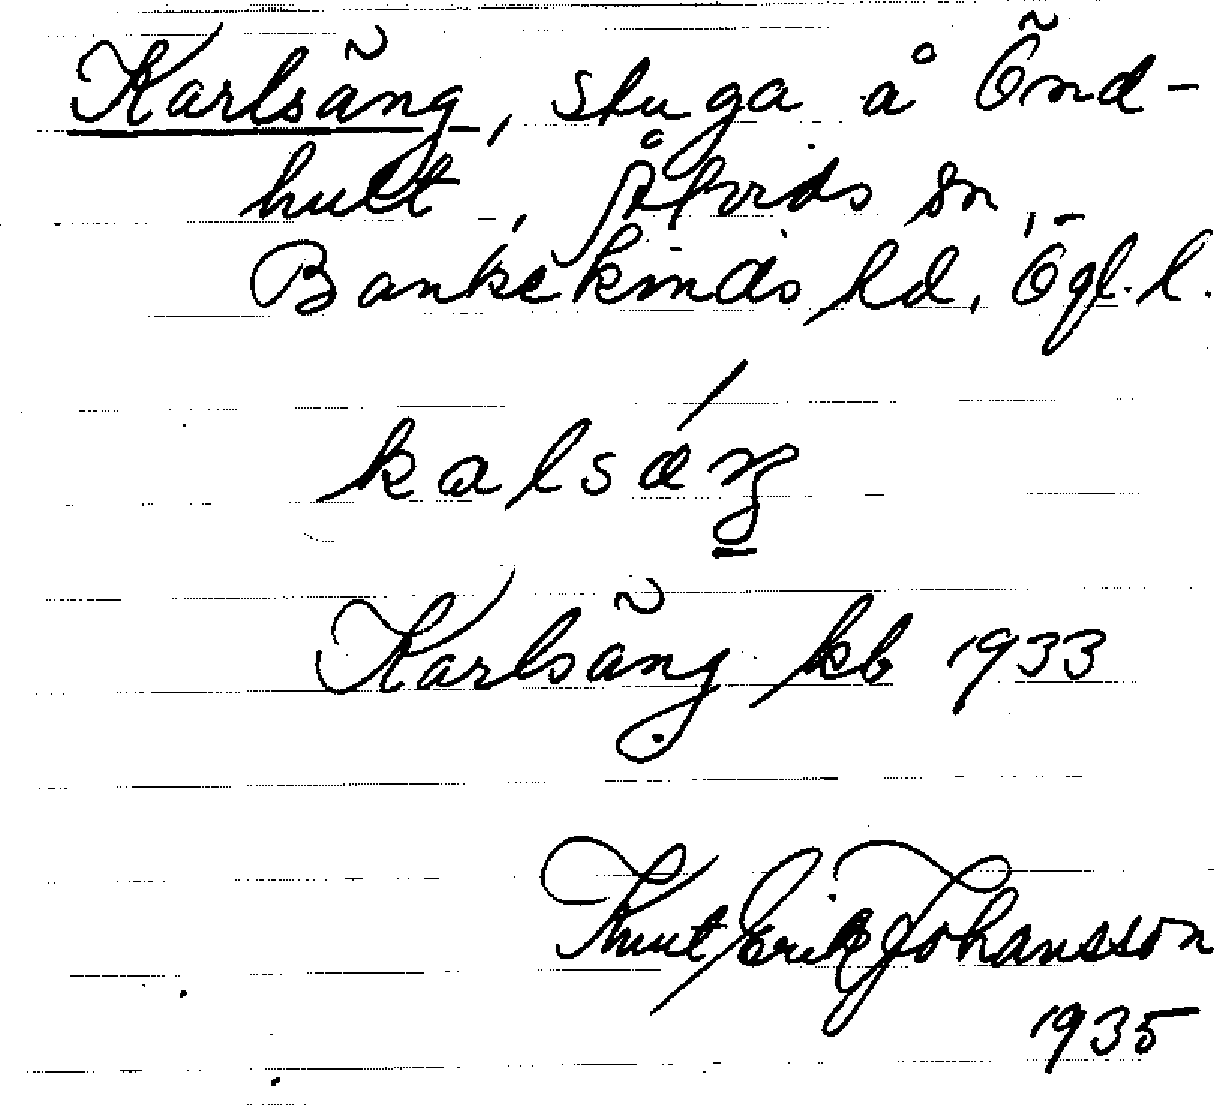 Karlsäng, stuga å Önd-
hult, Åtvids sn,
Bankekinds hd, Ögl. l.
kalsáŋ
Karlsäng kb 1933
Knut Erik Johansson
1935